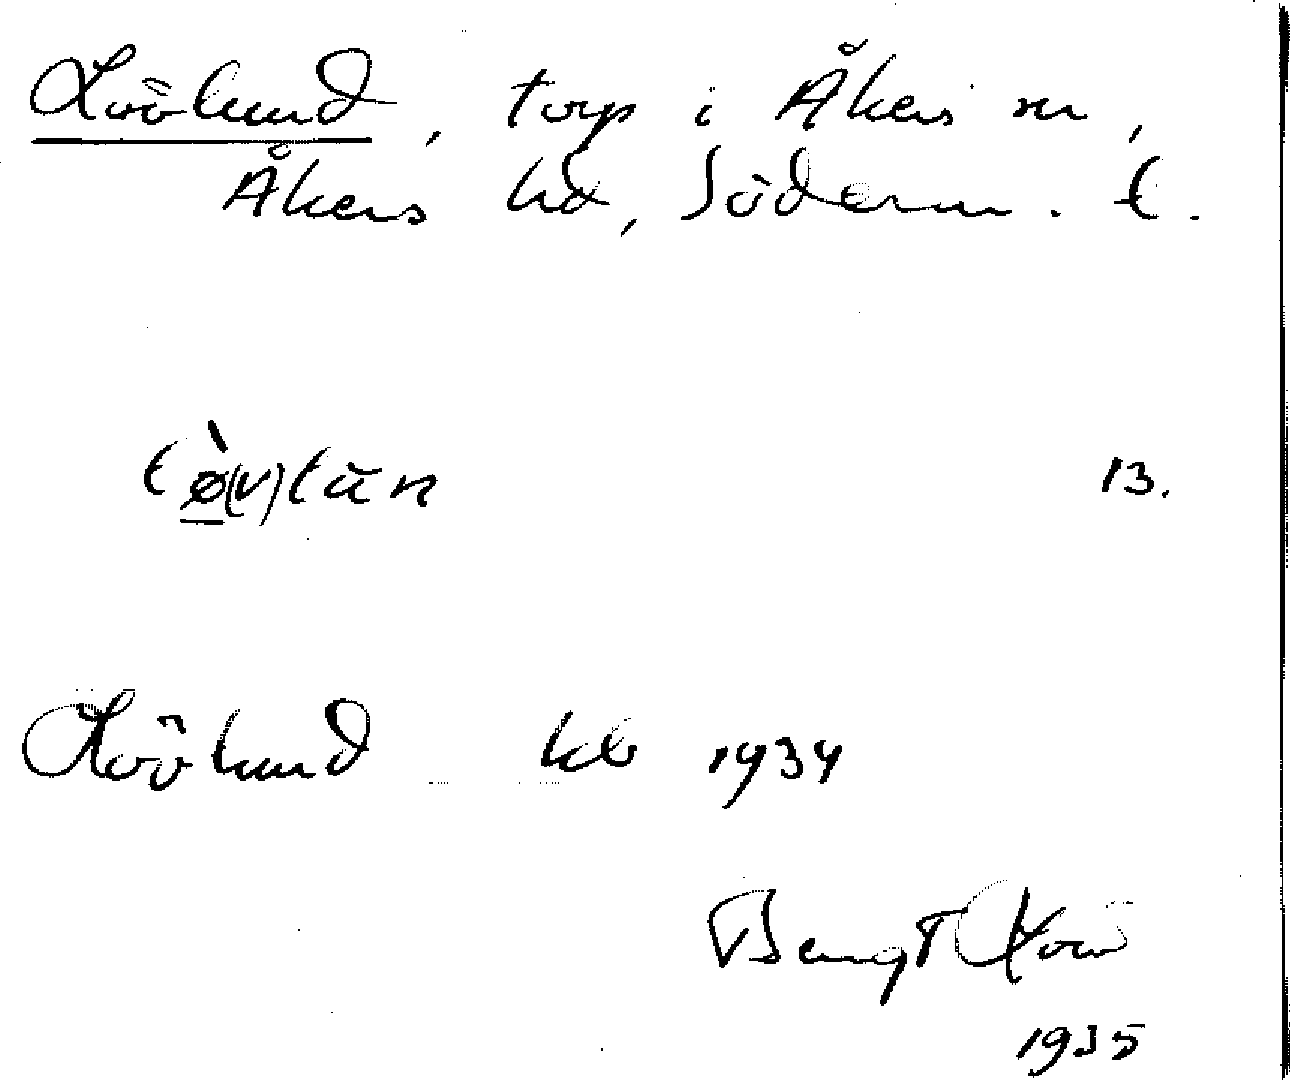 Lövlund, torp i Åkers sn,
Åkers hd, Söderm. l.
lø̀(v)lŭn 13.
Lövlund kb 1934
Bengt
1935